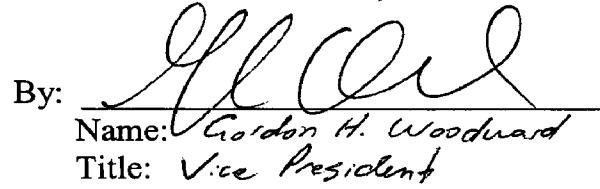 By:
Name: Gordon H. Woodward
Title: Vice President